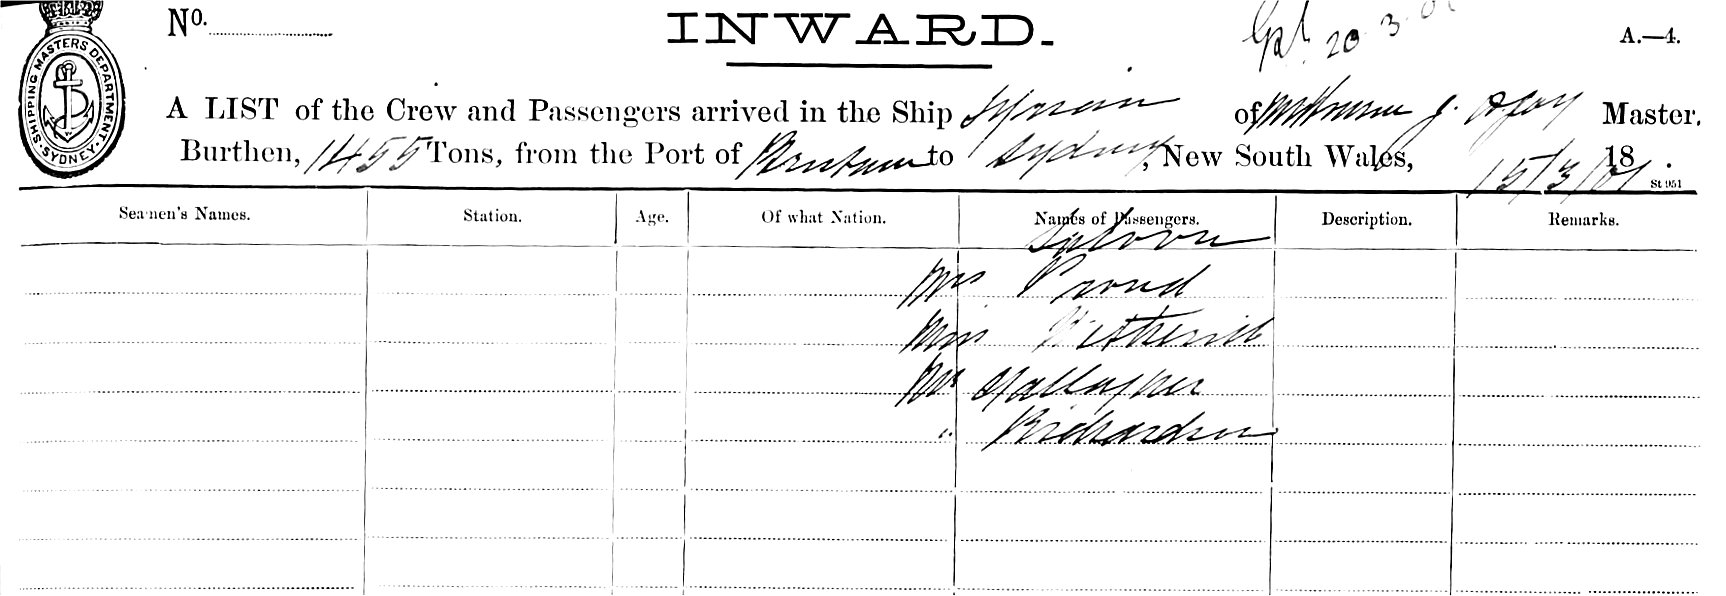 No.
INWARD.
20.3.01
A.—4.
SHIPPING MASTERS DEPARTMENT. SYDNEY.
A LIST of the Crew and Passengers arrived in the Ship of Melbourne J. Master.
Burthen, 1455 Tons, from the Port of to Sydney, New South Wales, 15/3/01 18 .
St 951
Seamen's Names. Station. Age. Of what Nation. Names of Passengers. Description. Remarks.
Saloon
Mrs Proud
Miss Wetherill
Mr Gallagher
" Richardson